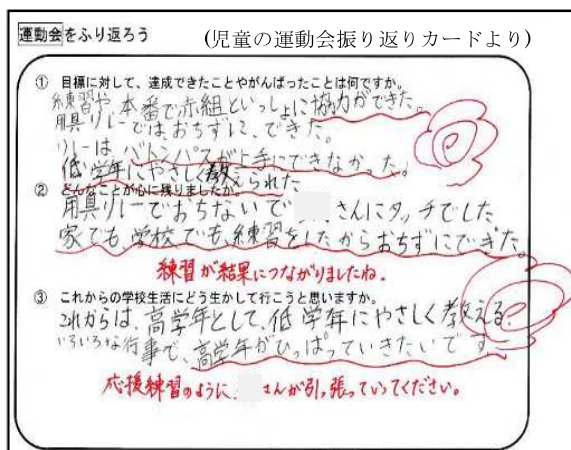 運動会をふり返ろう (児童の運動会振り返りカードより)
① 目標に対して、達成できたことやがんばったことは何ですか。
練習や、本番で赤組といっしょに協力ができた。
用具リレーではおちずに、できた。
リレーはバトンパスが上手にできなかった。
低学年にやさしく教えられた
② どんなことが心に残りましたか。
用具リレーでおちないで さんにタッチでした
家でも、学校でも、練習をしたからおちずにできた。
練習が結果につながりましたね。
③ これからの学校生活にどう生かして行こうと思いますか。
これからは、高学年として、低学年にやさしく教える。
いろいろな行事で、高学年がひっぱっていきたいです
応援練習のように、 さんが引っ張っていってください。